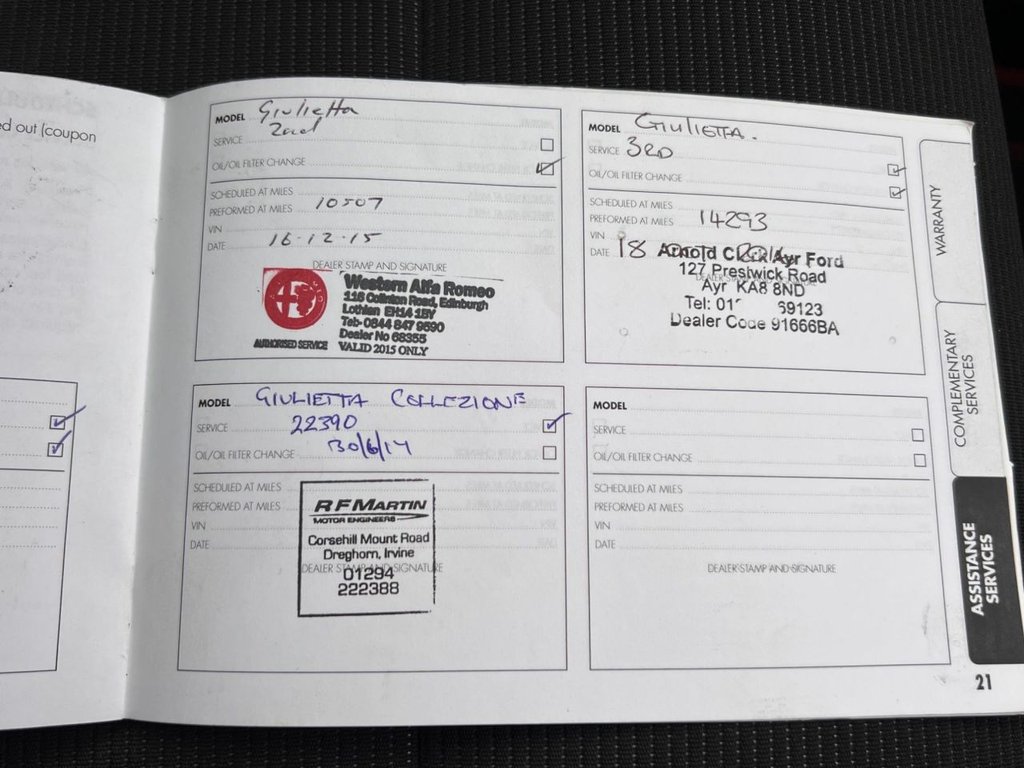 ed out (coupon
MODEL Giulietta
2nd
SERVICE
OIL/OIL FILTER CHANGE
SCHEDULED AT MILES
PREFORMED AT MILES 10507
VIN
DATE 16-12-15
DEALER STAMP AND SIGNATURE
Western Alfa Romeo
116 Colinton Road, Edinburgh
Lothian EH14 1BY
Teb-0844 847 9590
Dealer No 68355
AUTHORISED SERVICE VALID 2015 ONLY
MODEL GIULIETTA.
SERVICE 3RD
OIL/OIL FILTER CHANGE
SCHEDULED AT MILES
PREFORMED AT MILES 14293
VIN
DATE 18
Arnold Clark Ayr Ford
127 Prestwick Road
Ayr KA8 8ND
Tel: 01 69123
Dealer Code 91666BA
MODEL GIULIETTA COLLEZIONE
SERVICE 22390
OIL/OIL FILTER CHANGE 30/6/17
SCHEDULED AT MILES
PREFORMED AT MILES
VIN
DATE
RF MARTIN
MOTOR ENGINEERS
Corsehill Mount Road
Dreghorn, Irvine
DEALER STAMP AND SIGNATURE
01294
222388
MODEL
SERVICE
OIL/OIL FILTER CHANGE
SCHEDULED AT MILES
PREFORMED AT MILES
VIN
DATE
DEALER STAMP AND SIGNATURE
WARRANTY
COMPLEMENTARY
SERVICES
ASSISTANCE
SERVICES
21